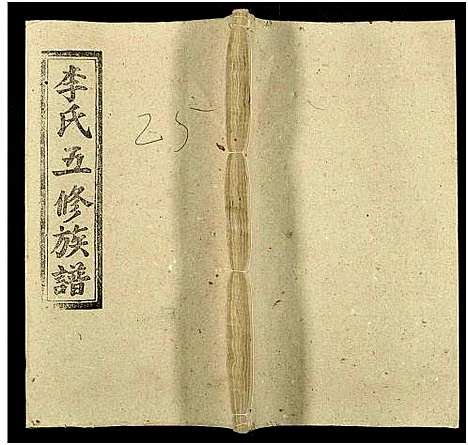 李氏五修族譜
25